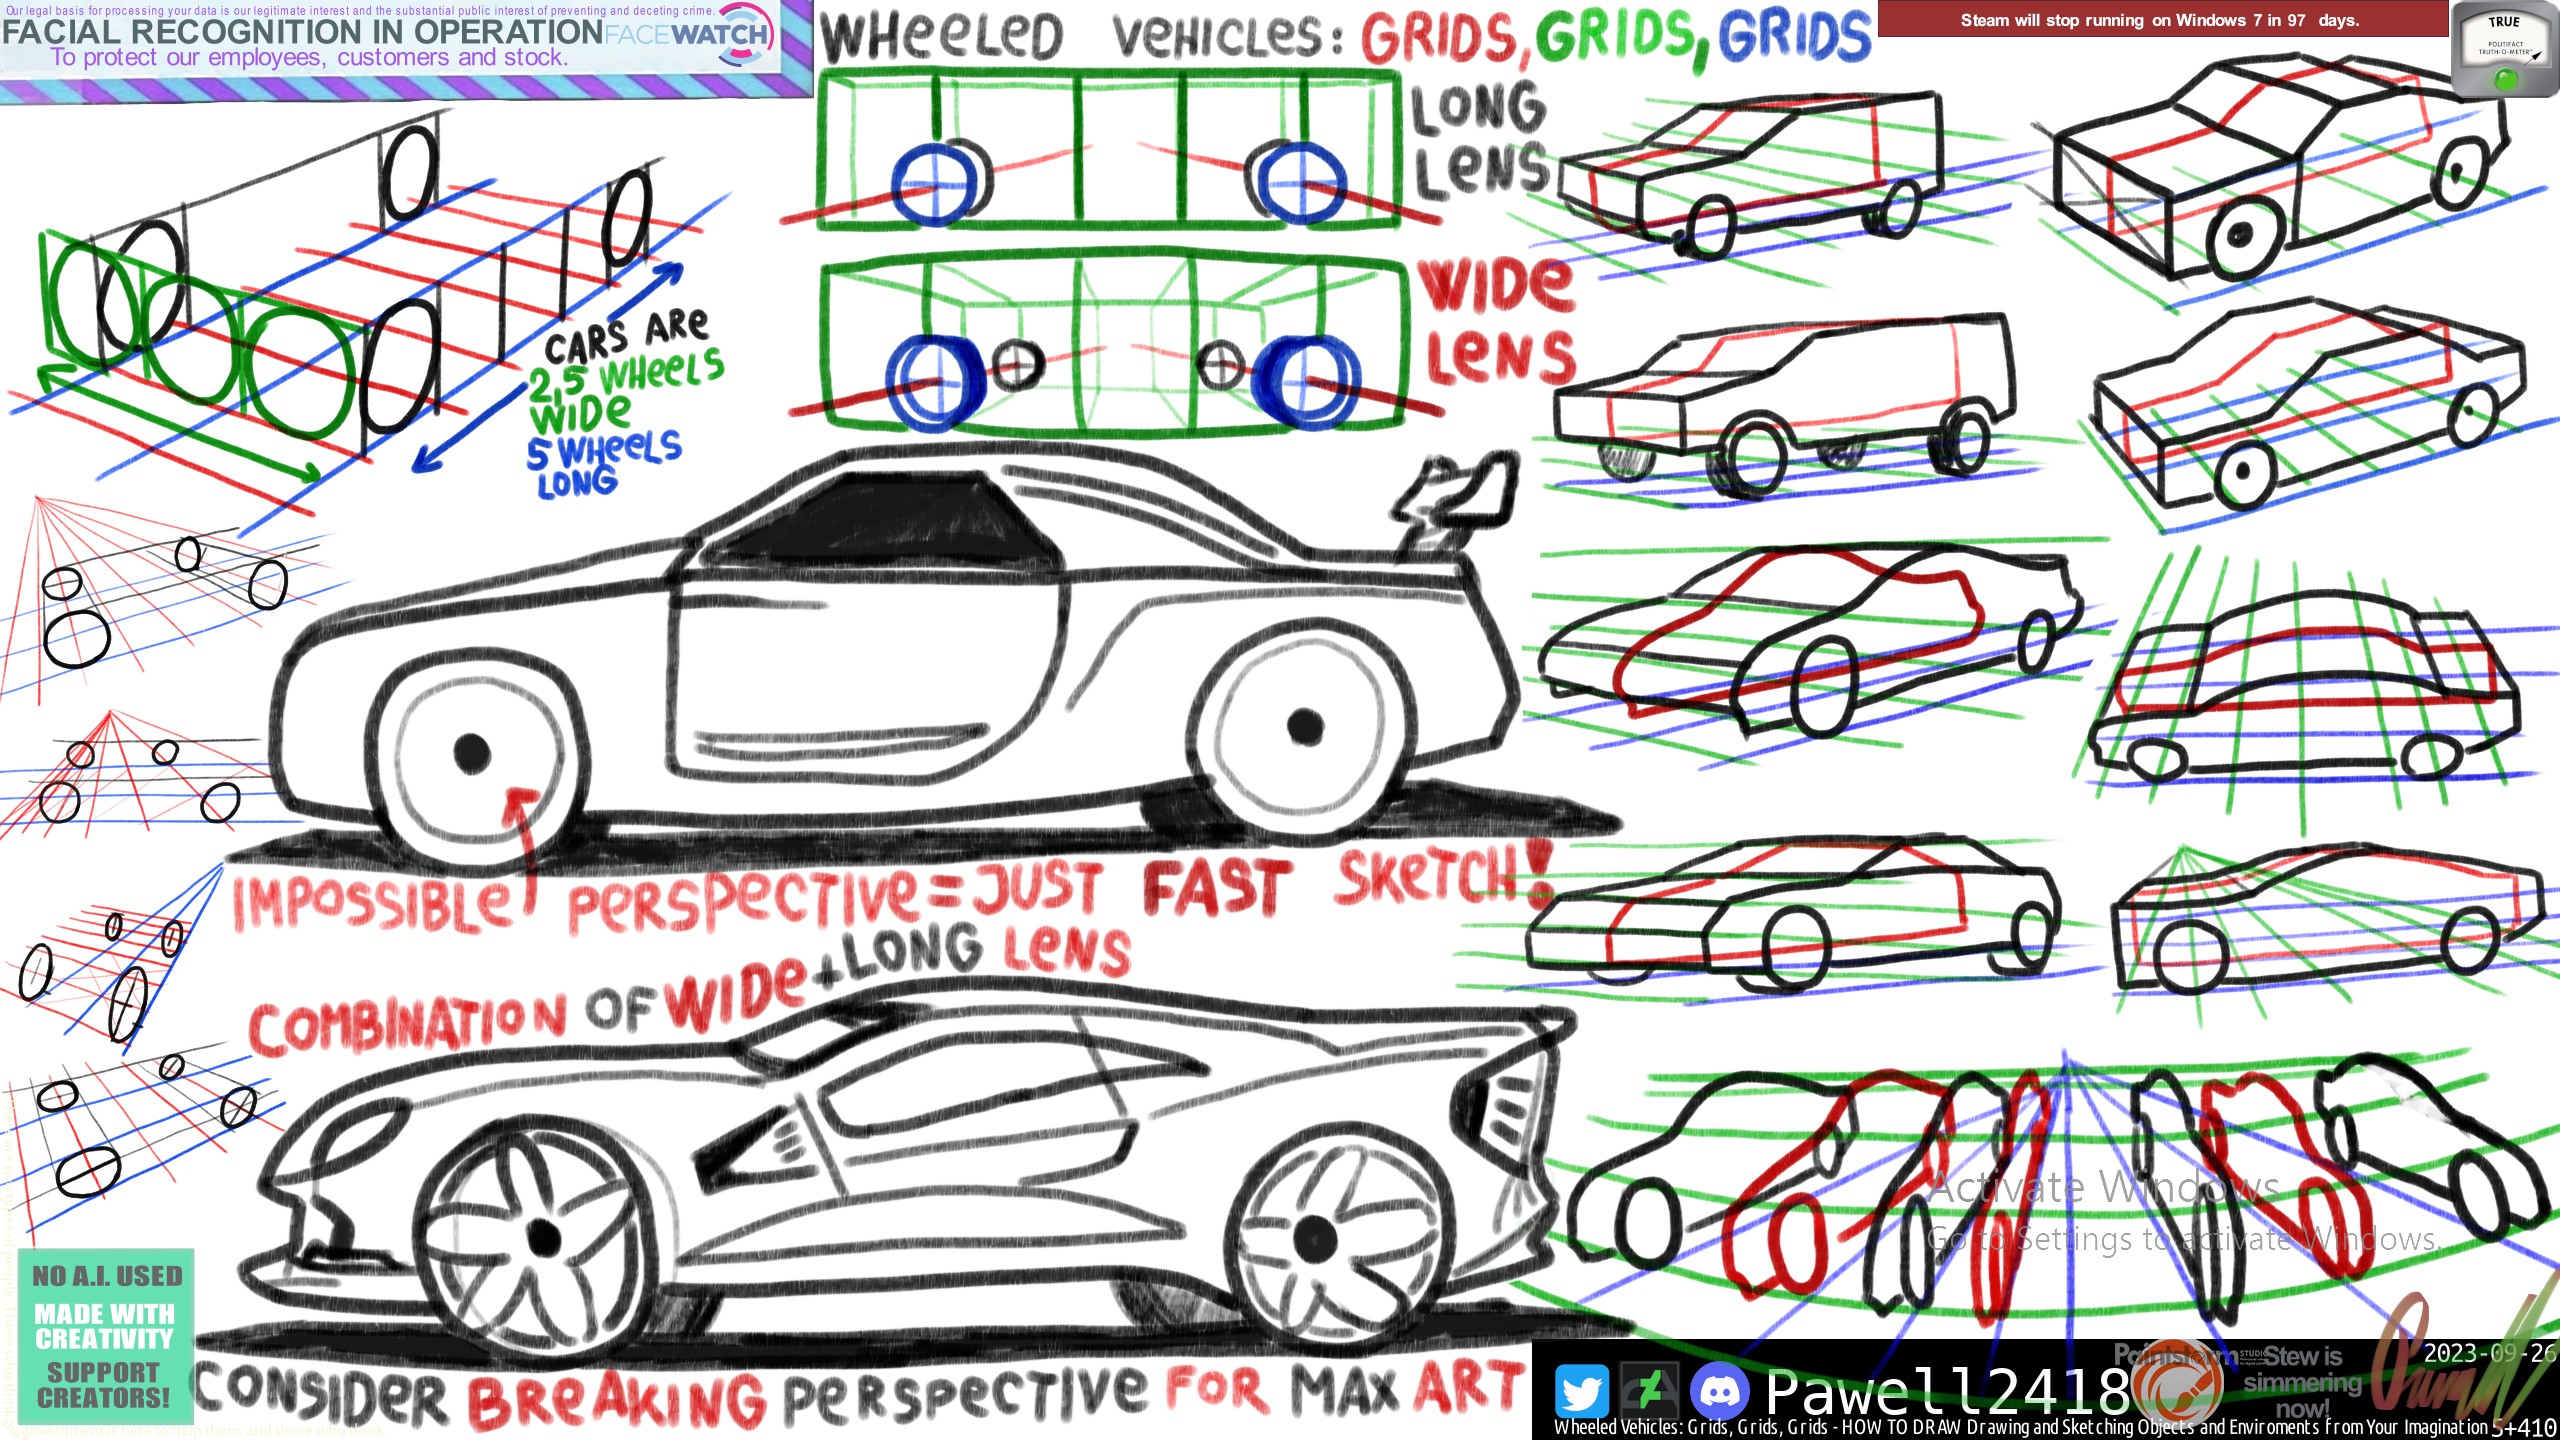 Our legal basis for processing your data is our legitimate interest and the substantial public interest of preventing and deceting crime.
FACIAL RECOGNITION IN OPERATION FACEWATCH
To protect our employees, customers and stock.
WHEELED VEHICLES: GRIDS, GRIDS, GRIDS
Steam will stop running on Windows 7 in 97 days.
TRUE
POLITIFACT
TRUTH-O-METER™
LONG
LENS
WIDE
LENS
CARS ARE
2,5 WHEELS
WIDE
5 WHEELS
LONG
IMPOSSIBLE PERSPECTIVE = JUST FAST SKETCH!
COMBINATION OF WIDE + LONG LENS
Activate Windows
Go to Settings to activate Windows.
NO A.I. USED
MADE WITH
CREATIVITY
SUPPORT
CREATORS!
CONSIDER BREAKING PERSPECTIVE FOR MAX ART
Pawell2418
Paintstorm STUDIO
Stew is
simmering
now!
2023-09-26
Wheeled Vehicles: Grids, Grids, Grids - HOW TO DRAW Drawing and Sketching Objects and Enviroments from Your Imagination 5+410
government is here to help them, and those who think.